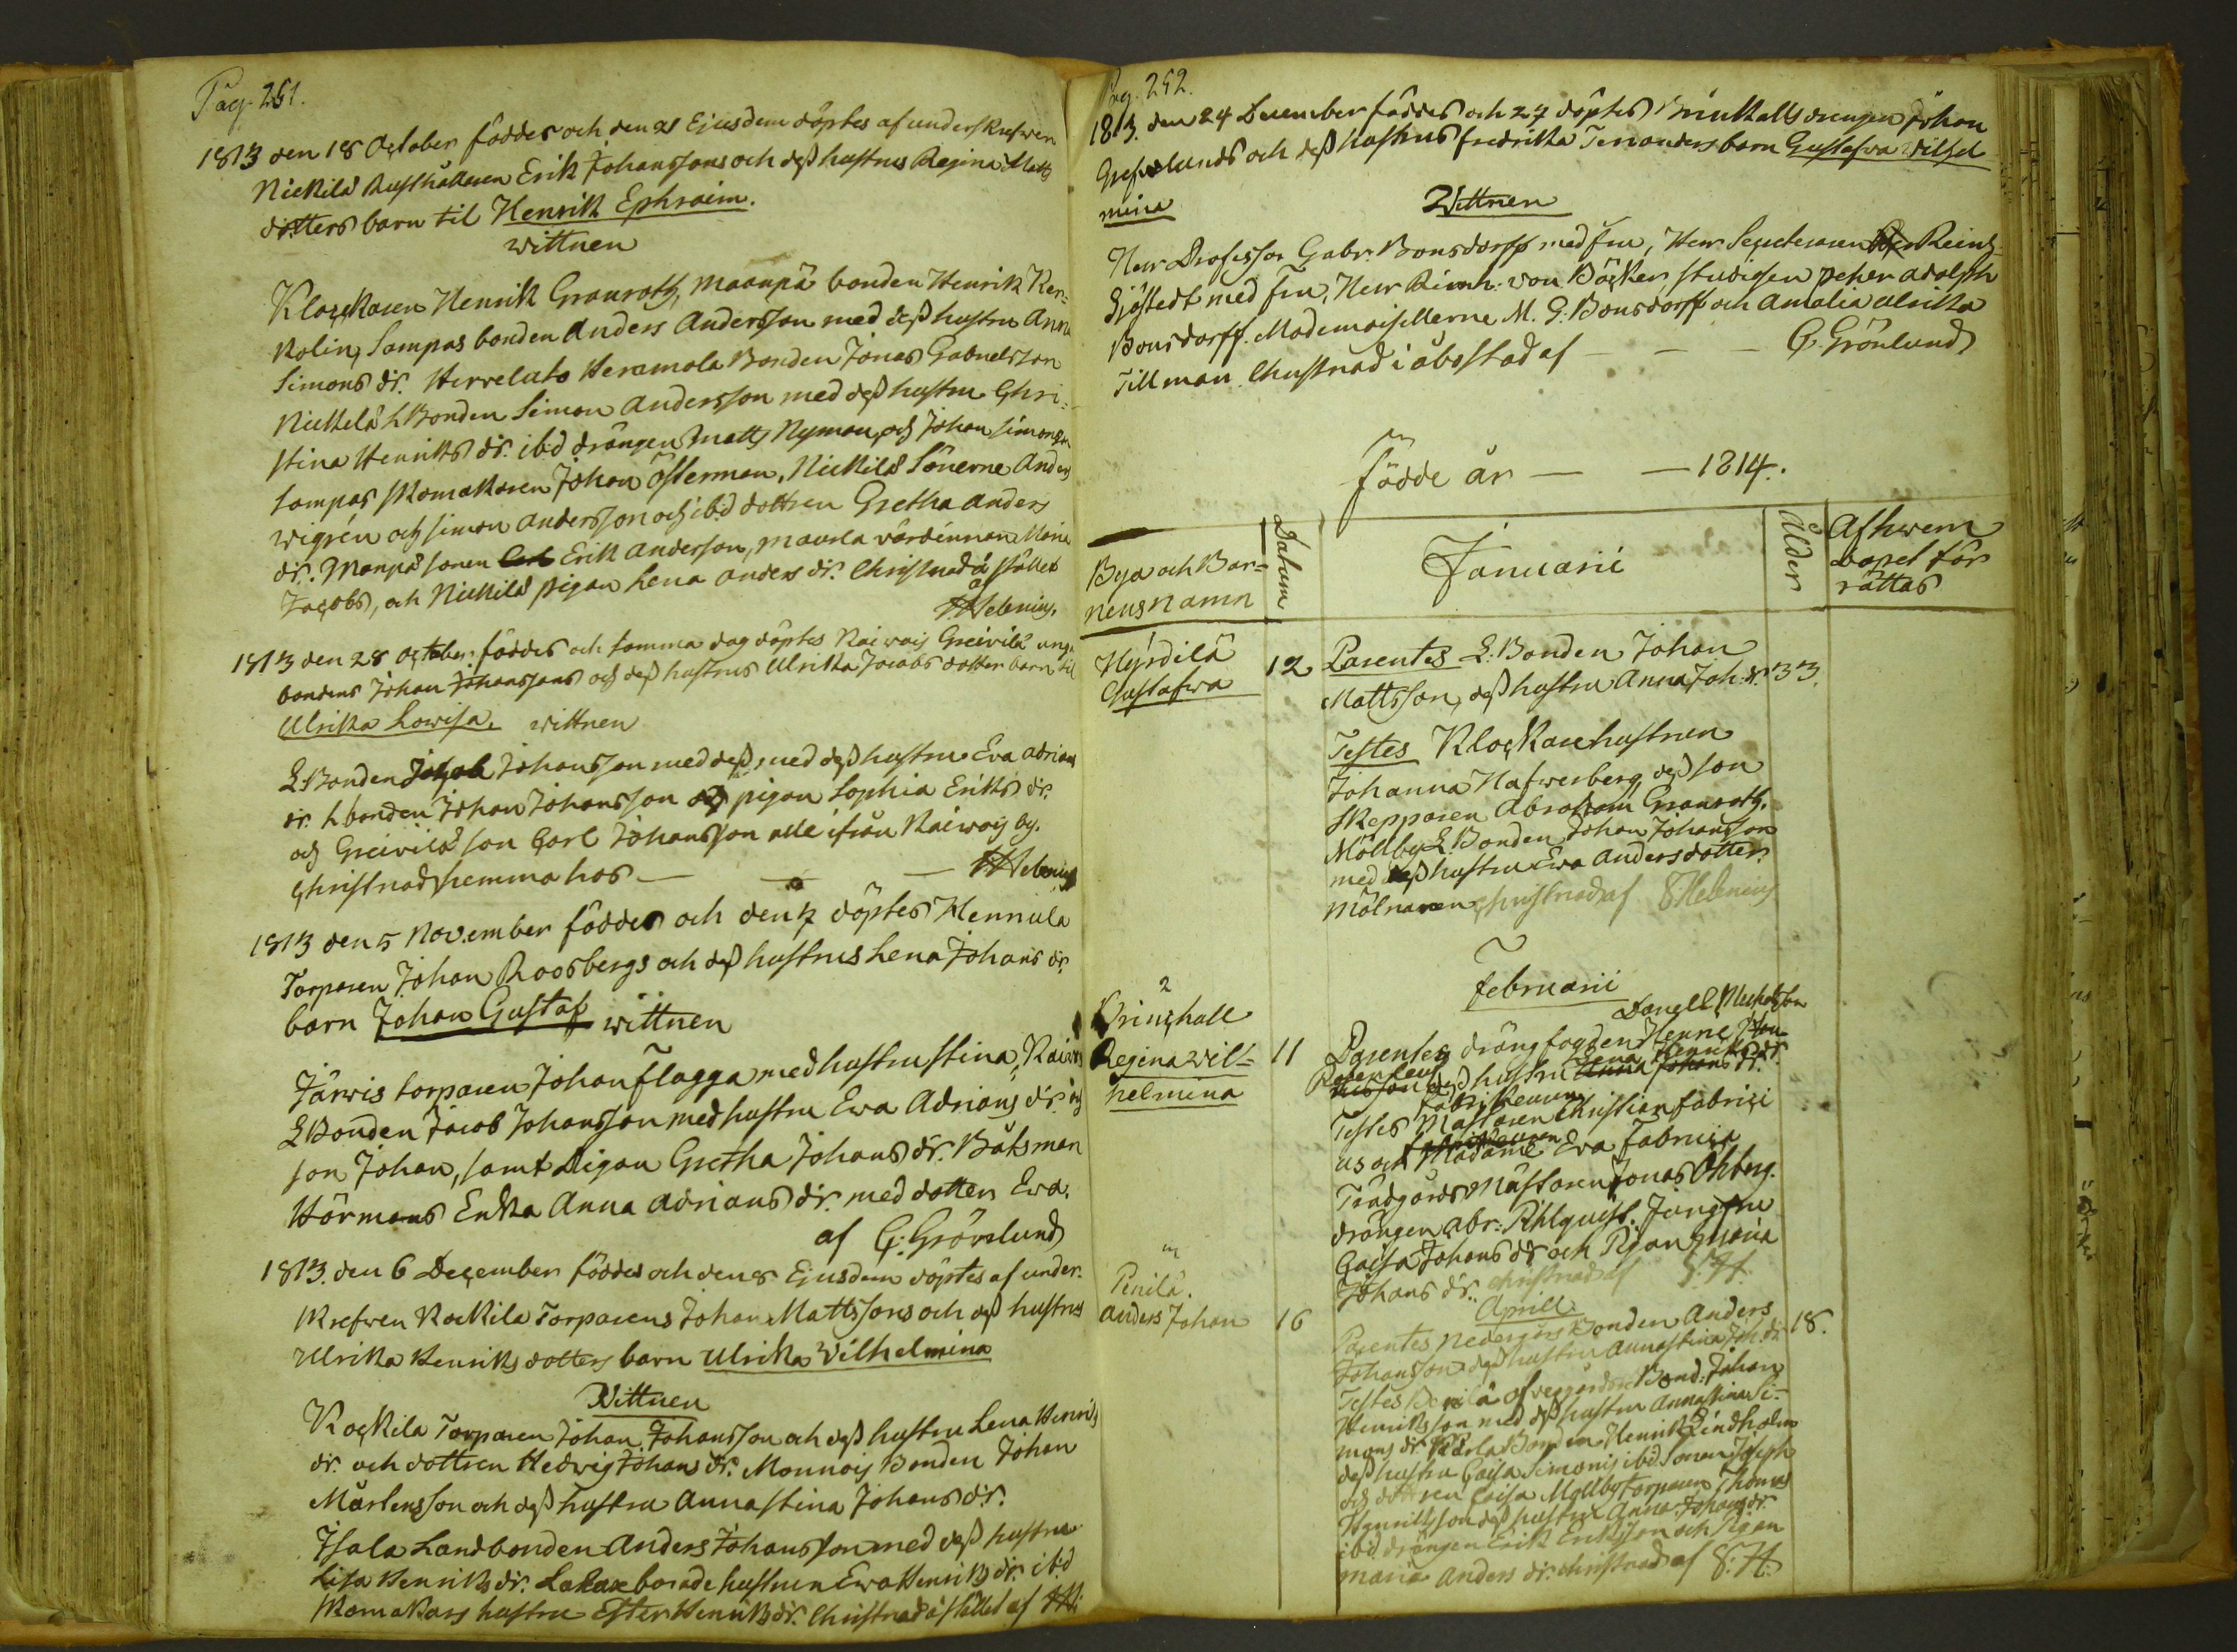 Pag. 251.
1813 den 18 October föddes och den 21 Ejusdem döptes af underskrefven
Nickilä Rusthållaren Erik Johanssons och dess hustrus Regina Matts
dotters barn til Henrik Ephraim.
wittnen
Klockaren Henrik Granroth, maanpä bonden Henrik Ker=
kolin, Sompas bonden Anders Andersson med dess hustru Anna
Simons dr. Hervelato Heramola Bonden Jonas Gabrielsson
Nickelä L Bonden Simon Andersson med dess hustru Chri=
stina Henriks dr. ibd drängen Matts Nyman, och Johan Simonsson
Sompas skomakaren Johan Österman, Nickilä Sönerne Anders
Wigrén och Simon Andersson och ibd dottren Gretha Anders
dr. Manpä sonen Erik Andersson, Maurla värdinnan Maria
Jacobs, och Nickilä pigan Lena Anders dr. Christnad å stället
af Helenius.
1813 den 28 October föddes och samma dag döptes Raivois Greivilä unge
bondens Johan Johanssons och dess hustrus Ulrika Jacobs dotter barn til
Ulrika Lovisa. wittnen
L Bonden Jacob Johansson med dess, med dess hustru Eva Adrians
dr. L bonden Johan Johansson och pigan Sophia Eriks dr.
och Greivilä son Carl Johansson alle ifrån Raivois by.
Christnad hemma hos — — — Helenius
1813 den 5 November föddes och den 7 döptes Hennula
Torparen Johan Roosbergs och dess hustrus Lena Johans dr.
barn Johan Gustaf wittnen
Järvis torparen Johan Flagga med hustru Stina, Raivois
L Bonden Jacob Johansson med hustru Ewa Adrians dr. och
son Johan, samt Pigan Gretha Johans dr. Båtsman
Hörmans Enka Anna Adrians dr. med dotter Ewa.
af G. Grönlund
1813. den 6 December föddes och den 8 Ejusdem döptes af under-
skrefven Kockila Torparens Johan Mattssons och dess hustrus
Ulrika Henriks dotters barn Ulrika Wilhelmina
Wittnen
Kockila Torparen Johan Johansson och dess hustru Lena Henriks
dr. och dottren Hedvig Johans dr. Monnois Bonden Johan
Mårtensson och dess hustru Anna Stina Johans dr.
Isala Landbonden Anders Johansson med dess hustru
Lisa Henriks dr. boende hustrun Ewa Henriks dr. ibd
skomakars hustru Ester Henriks dr. Christnad å stället af
Pag. 252.
1813. den 24 December föddes och 27 döptes Brinkalls drengen Johan
Grefvelunds och dess hustrus Fredrika Tenanders barn Gustafva Wilhel
mina
Wittnen
Herr Professor Gabr. Bonsdorff med fru, Herr Secreteraren Reinh.
Sjöstedt med fru, Herr Reinh: von Böcker, studiosen Peter Adolph
Bonsdorff. Mademoisellerne M. G. Bonsdorff och Amalia Ulrika
Tillman. Christnad i Åbo stad af — — — G. Grönlund
Födde år — — 1814.
Bya och Bar=
nens namn
Datum
Januarii
Ålder
Af hwem
dopet för
rättas
Hyrdilä
Gustafva
12
Parentes L. Bonden Johan
Mattsson, dess hustru Anna Joh. dr. 33.
Testes Klockare hustrun
Johanna Hafverberg dess son
Skepparen Abraham Granroth.
Möllby L. Bonden Johan Johansson
med dess hustru Ewa Anders dotter.
Mölnaren Christnad af S Helenius
Februarii
2
Brinckall
Regina Wil=
helmina
11
Parentes drängfogden
dess hustru Lena Henriks dr.
Testes Mästaren Christian Fabrici
us och Madame Eva Fabricia
Trädgårds Mästaren Jonas Öhberg.
drängen Abr: Pihlquist. Jungfru
Caisa Johans dr. och Pigan Maria
Johans dr. Christnad af S. H.
Aprill
Penilä.
Anders Johan
16
Parentes Nedergårds Bonden Anders 18.
Johansson dess hustru Anna Stina Joh. dr.
Testes Penilä Öfvergårds Bond. Johan
Henriksson med dess hustru Anna Stina Si=
mons dr. Bonden Henrik Lindholm
dess hustru Caisa Simons ibd Sonen Joseph
och dottren Caisa Möllby torparen Thomas
Henriksson dess hustru Anna Johans dr.
ibd drängen Erik Eriksson och Pigan
Maria Anders dr. Christnad af S. H.